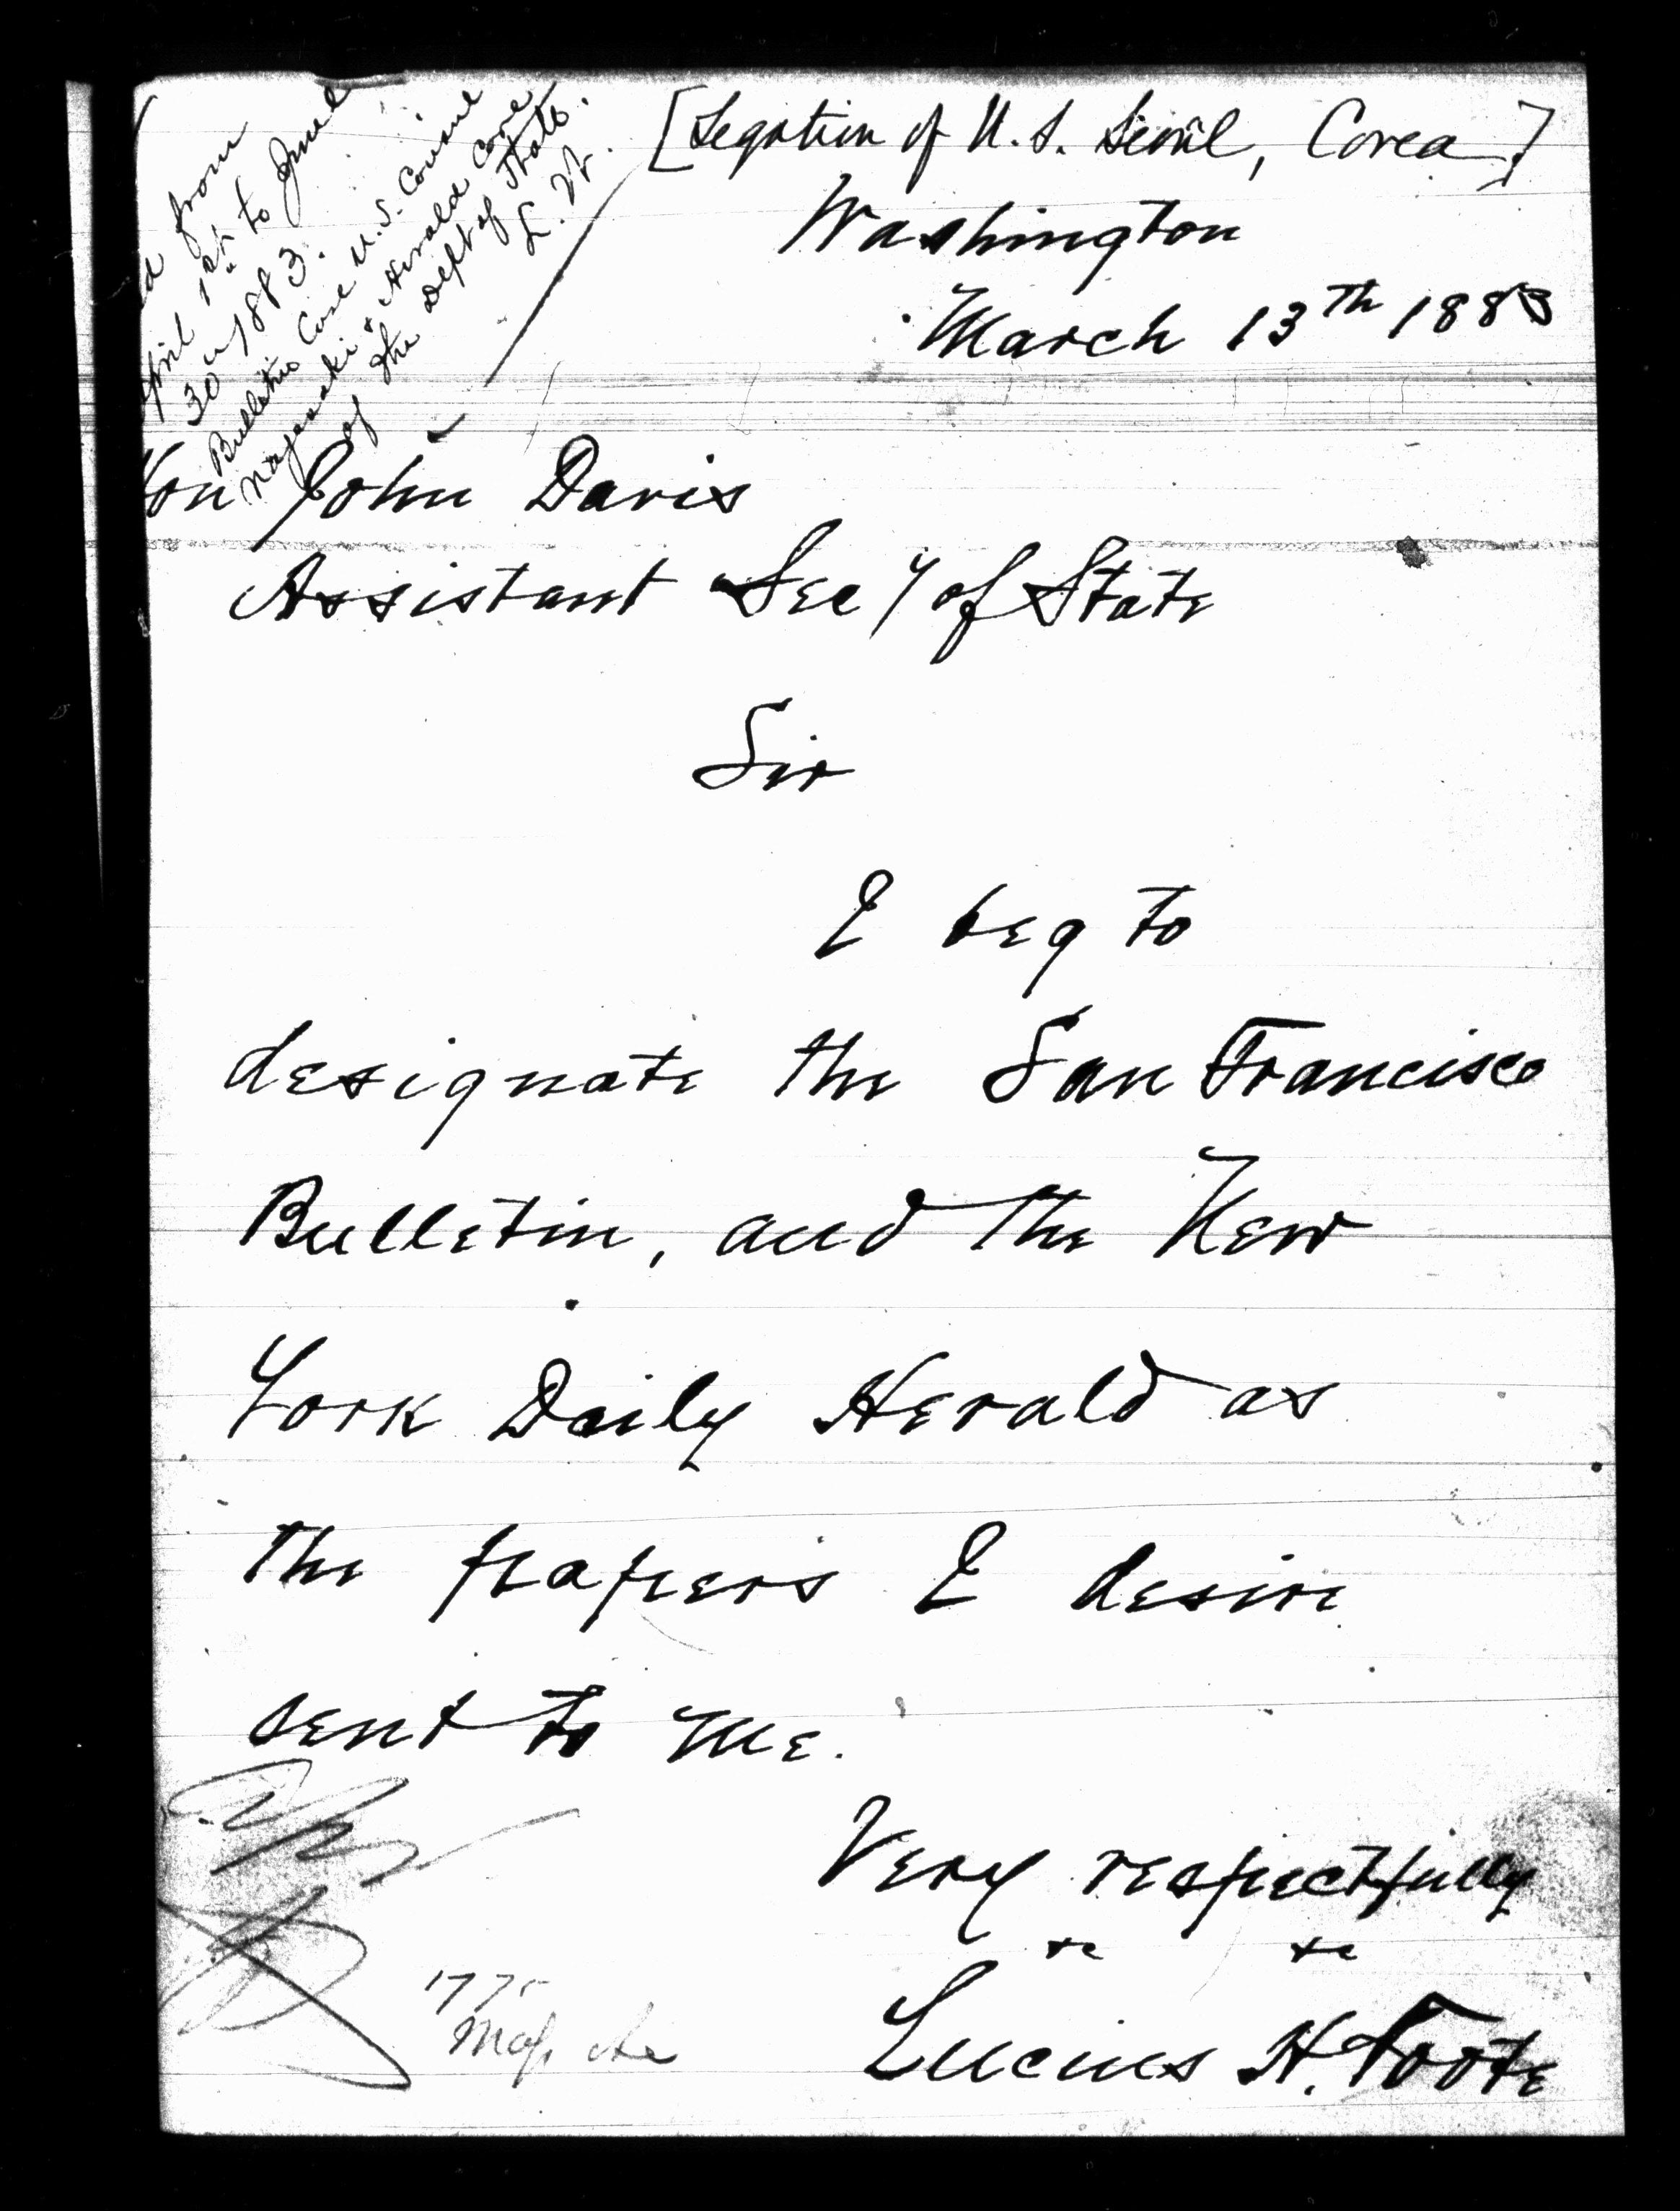 from
April 1st to June
30 1883.
Bulletin Care U.S. Consul
Nagasaki & Herald Care
of the Dept of State.
L. H.
[Legation of U.S. Seoul, Corea]
Washington
March 13th 1883
Hon John Davis
Assistant Sec'y of State
Sir
I beg to
designate the San Francisco
Bulletin, and the New
York Daily Herald as
the papers I desire
sent to me.
Very respectfully
&c &c
Lucius H. Foote
1775